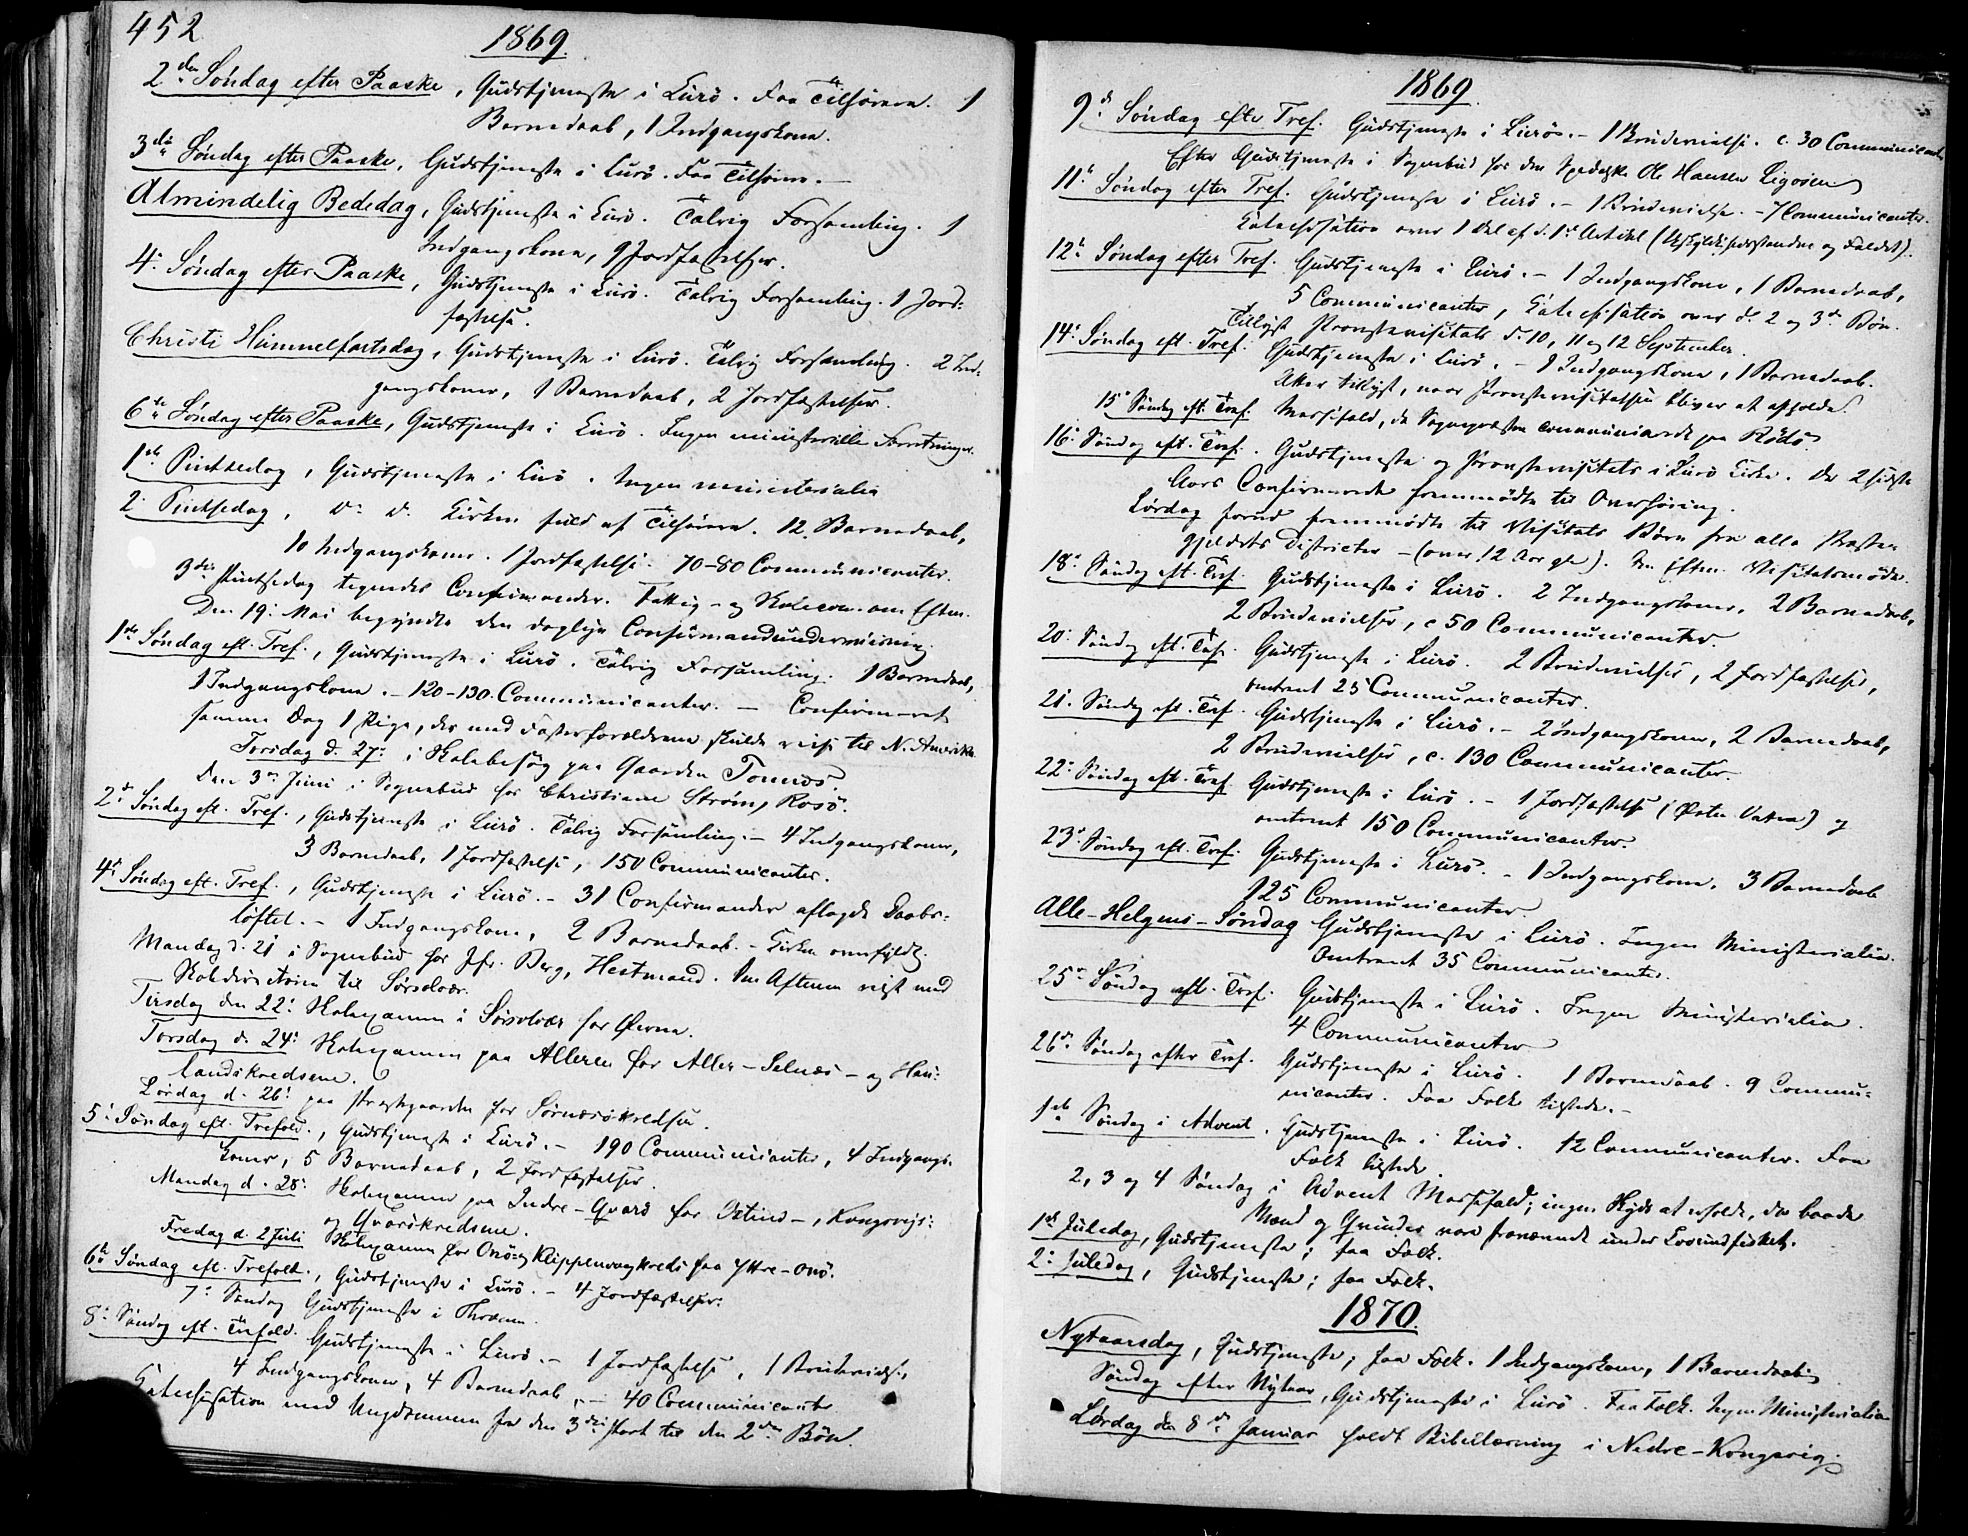 452
1869.
2den Søndag efter Paaske, Gudstjeneste i Lurö. Faa Tilhörere. 1
Barnedaab, 1 Indgangskone.
3die Søndag efter Paaske, Gudstjeneste i Lurö. Faa Tilhörere.
Almindelig Bededag, Gudstjeneste i Lurö. Talrig Forsamling. 1
Indgangskone, 9 Jordfæstelser.
4: Søndag efter Paaske, Gudstjeneste i Lurö. Talrig Forsamling. 1 Jord-
fæstelse.
Christi Himmelfartsdag, Gudstjeneste i Lurö. Talrig Forsamling. 2 Ind-
gangskoner, 1 Barnedaab, 2 Jordfæstelser.
6te Søndag efter Paaske, Gudstjeneste i Lurö. Ingen ministerielle Forretninger.
1ste Pintsedag, Gudstjeneste i Lurö. Ingen ministerialia
2: Pintsedag, Do Do. Kirken fuld af Tilhörere. 12 Barnedaab,
10 Indgangskoner. 1 Jordfæstelse. 70-80 Communicanter.
3die Pintsedag tegnedes Confirmander. Fattig- og Skolecom. om Efterm.
Den 19: Mai begyndte den daglige Confirmandundervisning.
1ste Søndag eft. Tref., Gudstjeneste i Lurö. Talrig Forsamling. 1 Barnedaab,
1 Indgangskone. - 120-130 Communicanter. - Confirmeret
samme Dag 1 Pige, der med Fosterforældrene skulde reise til N. Amerika
Torsdag d. 27: i Skolebesøg paa Gaarden Tonnæs.
Den 3die Juni i Sognebud for Christiane Strøm, Rosö.
2de Søndag eft. Tref., Gudstjeneste i Lurö. Talrig Forsamling. - 4 Indgangskoner,
3 Barnedaab, 1 Jordfæstelse, 150 Communicanter.
4: Søndag eft. Tref., Gudstjeneste i Lurö. - 31 Confirmander aflagde Daabs-
løftet. - 1 Indgangskone, 2 Barnedaab. - Kirken overfyldt.
Mandag d. 21 i Sognebud for Jfr. Berg, Hestmand. Om Aftenen reist med
Skoledirectören til Sørsolvær.
Tirsdag den 22: Skoleexamen i Sørsolvær for Øerne.
Torsdag d. 24: Skoleexamen paa Alleren for Aller- Selnæs- og Han-
landskredsene.
Lördag d. 26: paa Præstgaarden for Sörnesökredsen.
5: Søndag eft. Trefold., Gudstjeneste i Lurö. - 190 Communicanter, 4 Indgangs-
koner, 5 Barnedaab, 2 Jordfæstelser.
Mandag d. 28: Skoleexamen paa Indre-Qvarö for Oxtind-, Kongsvig-
og Qvarökredsene.
Fredag d. 2 Juli Skoleexamen for Onö- og Klippenvaagkreds paa Yttre-Onö.
6te Søndag eft. Trefold., Gudstjeneste i Lurö. - 4 Jordfæstelser.
7: Søndag Gudstjeneste i Thræna.
8: Søndag eft. Trefold. Gudstjeneste i Lurö. - 1 Jordfæstelse, 1 Brudevielse,
4 Indgangskoner, 4 Barnedaab, - 40 Communicanter
Katechisation med Ungdommen fra den 3die Part til den 2den Bön.
1869.
9de Søndag efter Tref. Gudstjeneste i Lurö. - 1 Brudevielse. c. 30 Communicanter
Efter Gudstjeneste i Sognebud for den Spedalske Ole Hansen Ligoöen
11te Søndag efter Tref. Gudstjeneste i Lurö. - 1 Brudevielse. - 7 Communicanter.
Katechisation over 1 Del af d. 1ste Artikel (Uskyldighedsstanden og Faldet).
12te Søndag efter Tref. Gudstjeneste i Lurö. - 1 Indgangskone, 1 Barnedaab,
5 Communicanter, Katechisation over de 2 og 3die Bön.
Tillyst Provstevisitats d. 10, 11 og 12 September.
14: Søndag eft. Tref. Gudstjeneste i Lurö. - 1 Indgangskone, 1 Barnedaab.
Atter tillyst, naar Provstevisitatsen bliver at afholde.
15de Søndag eft. Tref. Messefald, da Sognepræsten communicerede paa Rödö
16: Søndag eft. Tref. Gudstjeneste og Provstevisitats i Lurö Kirke. De 2 sidste
Aars Confirmerede fremmödte til Overhöring.
Lørdag forud fremmödte til Visitats Börn fra alle Præste-
gjeldets Districter - (over 12 Aar gle). Om Efterm. Visitatsmöde.
18: Søndag eft. Tref. Gudstjeneste i Lurö. 2 Indgangskoner, 2 Barnedaab,
2 Brudevielser, c 50 Communicanter.
20: Søndag eft. Tref. Gudstjeneste i Lurö. 2 Brudevielser, 2 Jordfæstelser,
omtrent 25 Communicanter.
21: Søndag eft. Tref. Gudstjeneste i Lurö. - 2 Indgangskoner, 2 Barnedaab,
2 Brudevielser, c. 130 Communicanter.
22: Søndag eft. Tref. Gudstjeneste i Lurö. - 1 Jordfæstelse ( ) og
omtrent 150 Communicanter.
23: Søndag eft. Tref. Gudstjeneste i Lurö. - 1 Indgangskone. 3 Barnedaab
125 Communicanter.
Alle-Helgens-Søndag Gudstjeneste i Lurö. Ingen Ministerialia.
Omtrent 35 Communicanter.
25de Søndag eft. Tref. Gudstjeneste i Lurö. Ingen Ministerialia.
4 Communicanter
26de Søndag efter Tref. Gudstjeneste i Lurö. 1 Barnedaab. 9 Commu-
nicanter. Faa Folk tilstede. -
1ste Søndag i Advent. Gudstjeneste i Lurö. 12 Communicanter. Faa
Folk tilstede.
2, 3 og 4 Søndag i Advent Messefald; ingen Kirke at holde, da baade
Mænd og Qvinder vare fraværende under Lovundfisket.
1ste Juledag, Gudstjeneste; faa Folk.
2: Juledag, Gudstjeneste; faa Folk.
1870.
Nytaarsdag, Gudstjeneste; faa Folk. 1 Indgangskone, 1 Barnedaab
Søndag efter Nytaar, Gudstjeneste i Lurö. Faa Folk. Ingen Ministerialia
Lørdag den 8de Januar holdt Bibellæsning i Nedre-Kongsvig.